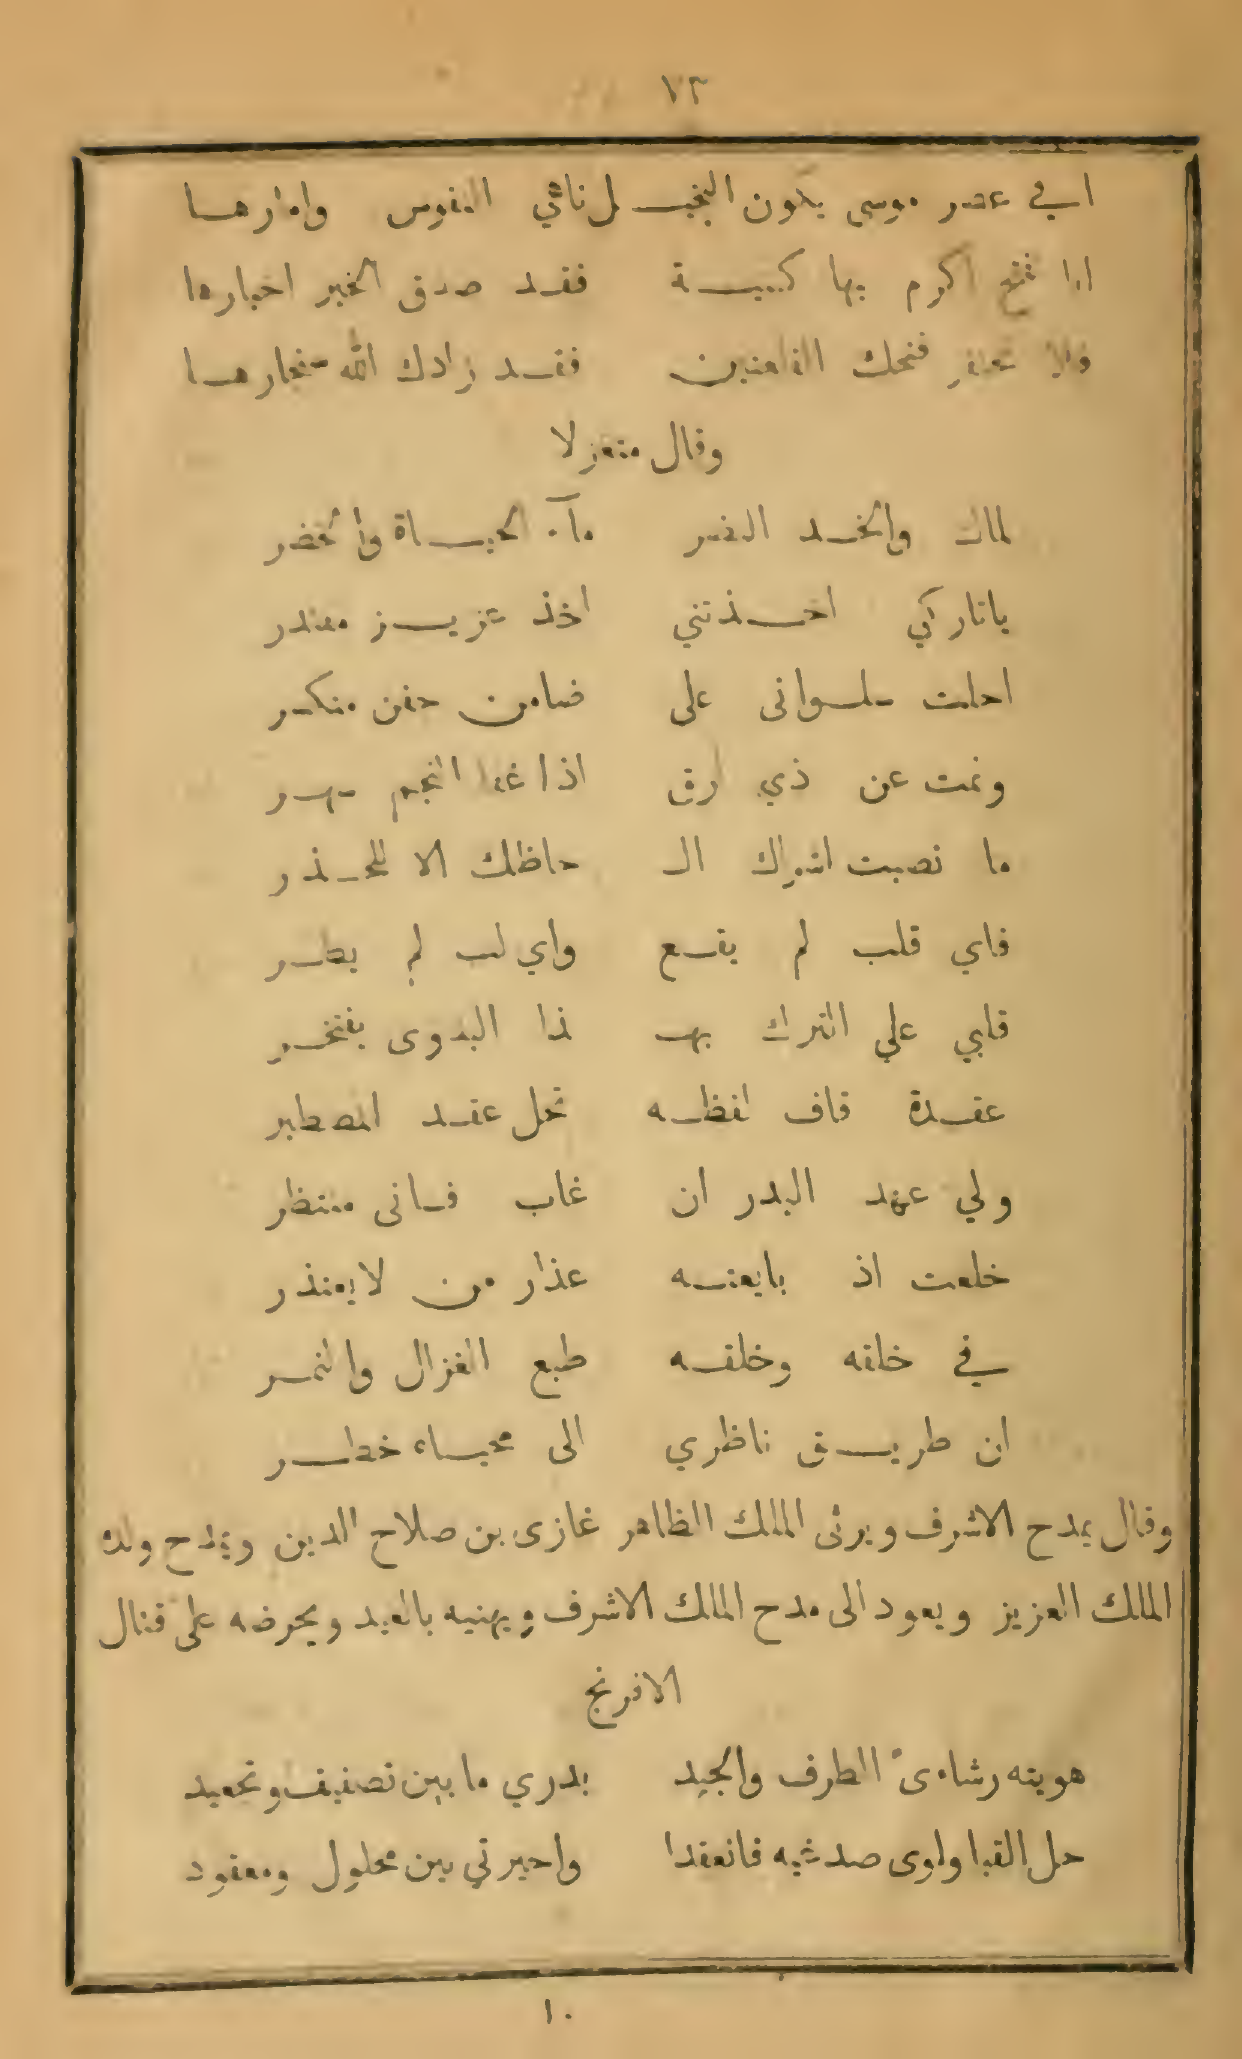 ٧٣
ابي عصر موسى يكون النجيب لمن ناشي النفوس واوارهسا
اذا تفتح اكرم بها كبيسة فقد صدق الخبر اخبارها
والا فنحك الفاطنين فقد زادك الله مفخارهسا
وقال متغزلا
لماك والخد النضر مآء الحيساة والخضر
ياتاركي اخسذتني اخذ عزيسز مقتدر
احلت سلسوانى على ضامن جفن منكسر
ونمت عن ذي ارق اذا غفا النجم سهسر
ما نصبت اشراك الـ حاظك الا للحسذر
فاي قلب لم يقسع واي لب لم يطسر
قلبي علي الترك بهـ ذا البدوى يفتخسر
عقسدة قاف لفظسه تحل عقسد المصطبر
ولي عهد البدر ان غاب فسانى منتظر
خلعت اذ بايعتسه عذار من لايعتذر
في خلقه وخلقسه طبع الغزال والنمسر
ان طريسق ناظري الى محيساه خطسر
وقال يمدح الاشرف ويرثى الملك الظاهر غازى بن صلاح الدين ويمدح ولده
الملك العزيز ويعود الى مدح الملك الاشرف ويهنيه بالعيد ويحرضه على قتال
الافرنج
هويته رشاءىَّ الطرف والجيد بدري ما بين تصفيف وتجعيد
حل القبا ولوى صدغيه فانعقدا واحيرتي بين محلول ومعقود
١٠